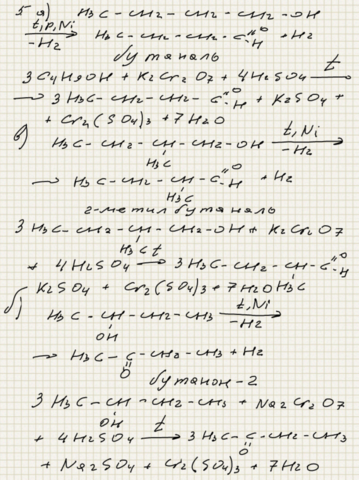 5 а) H₃C – CH₂ – CH₂ – CH₂ – OH
t,p,Ni → -H₂ H₃C – CH₂ – CH₂ – C =O -H + H₂
бутаналь
3 C₄H₉OH + K₂Cr₂O₇ + 4H₂SO₄ t
→ 3 H₃C – CH₂ – CH₂ – C =O -H + K₂SO₄ +
+ Cr₂(SO₄)₃ + 7H₂O
в) H₃C – CH₂ – CH – CH₂ – OH t,Ni → -H₂
H₃C
→ H₃C – CH₂ – CH – C =O -H + H₂
H₃C
2-метилбутаналь
3 H₃C – CH₂ – CH – CH₂ – OH + K₂Cr₂O₇
H₃C
+ 4H₂SO₄ t → 3 H₃C – CH₂ – CH – C =O -H
K₂SO₄ + Cr₂(SO₄)₃ + 7H₂O H₃C
б) H₃C – CH – CH₂ – CH₃ t,Ni → -H₂
OH
→ H₃C – C – CH₂ – CH₃ + H₂
O
бутанон-2
3 H₃C – CH – CH₂ – CH₃ + Na₂Cr₂O₇
OH
+ 4H₂SO₄ t → 3 H₃C – C – CH₂ – CH₃
O
+ Na₂SO₄ + Cr₂(SO₄)₃ + 7H₂O